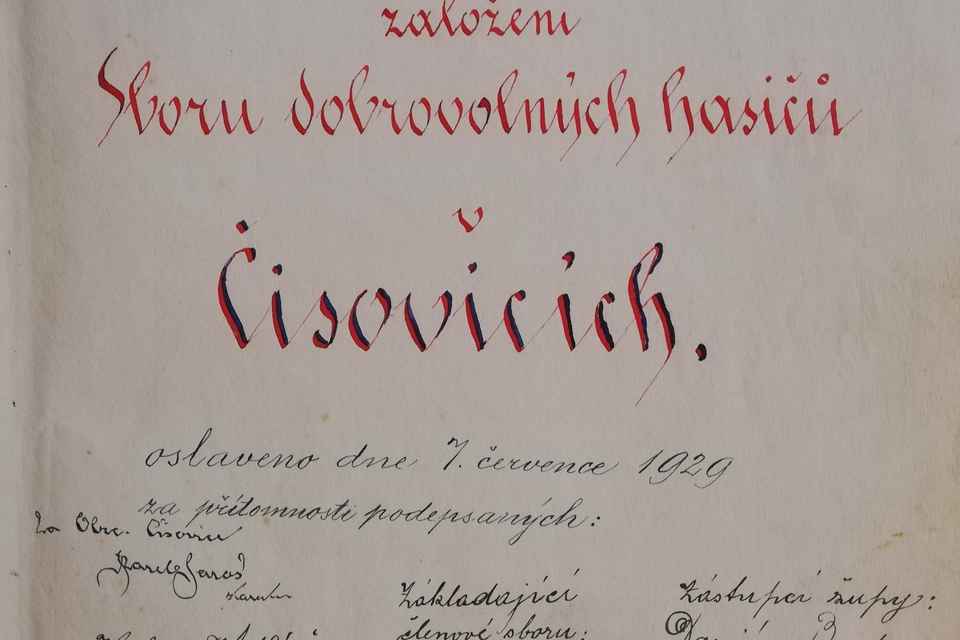 založení
Sboru dobrovolných hasičů
v
Čisovicích.
oslaveno dne 7. července 1929
za přítomnosti podepsaných:
Za Obec Čisovice
Karel Jaroš
Zakládající
Zástupci župy:
členové sboru: